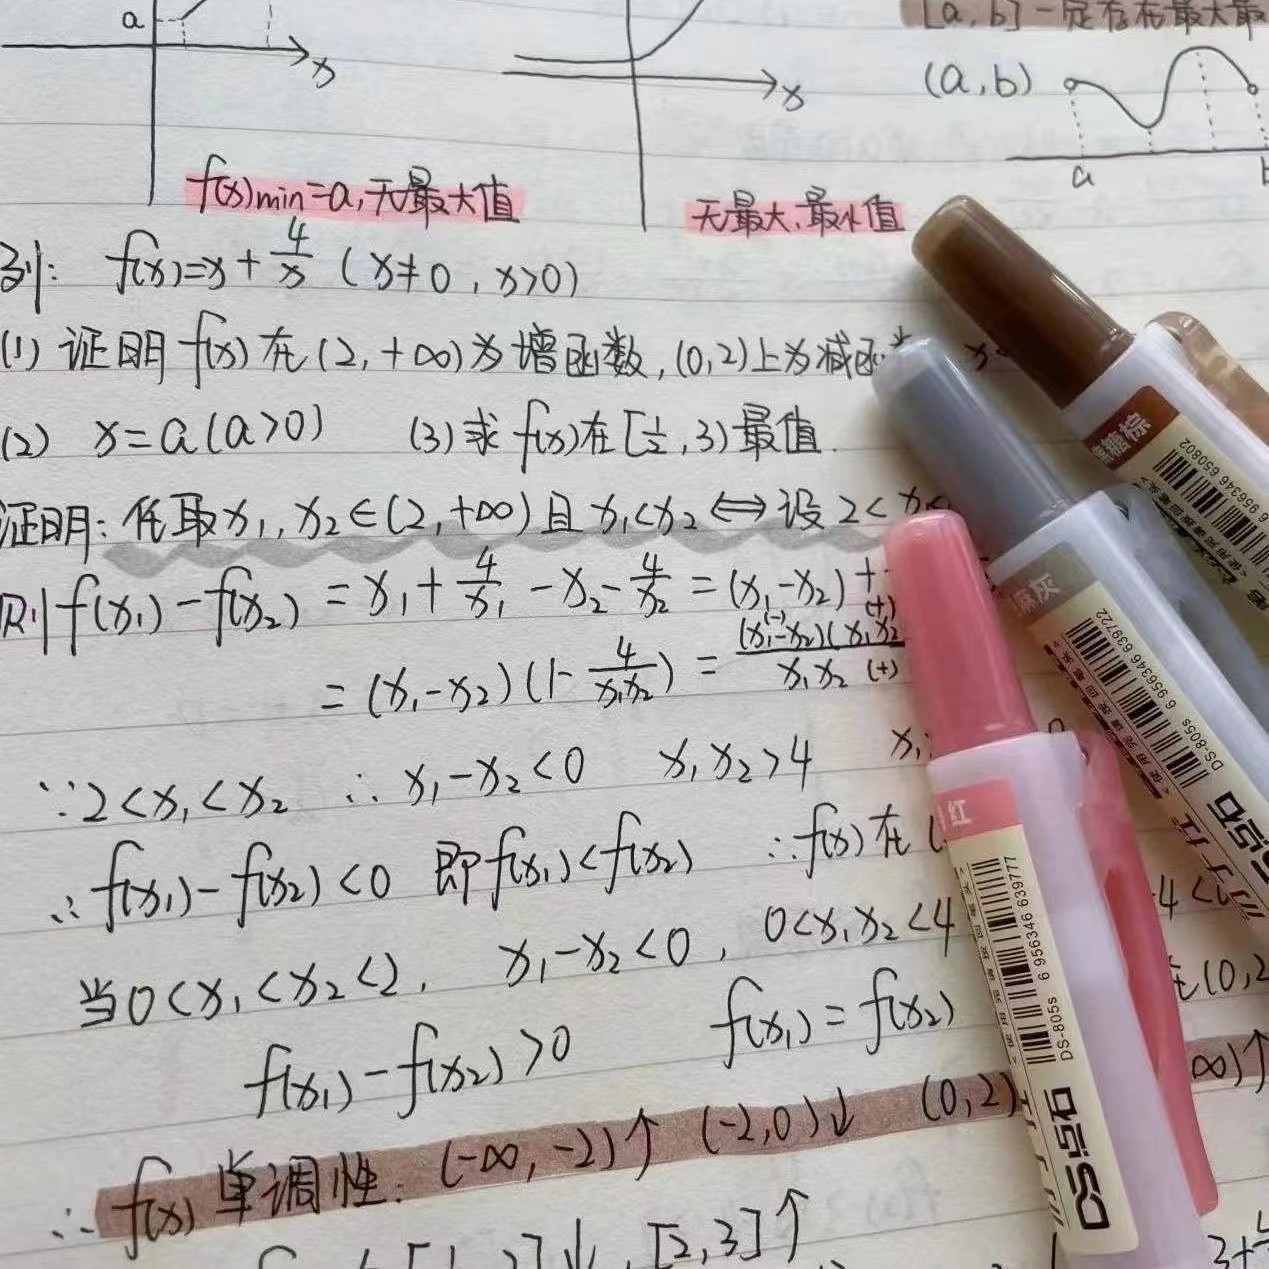 a
x
x
[a, b] 一定存在最大最
(a, b)
a
b
f(x)min=a, 无最大值
无最大、最小值
例: f(x)=x+4/x (x≠0, x>0)
(1) 证明 f(x) 在 (2, +∞) 为增函数, (0,2)上为减函
(2) x=a(a>0) (3) 求 f(x)在[1/2, 3) 最值.
证明: 任取x₁, x₂∈(2, +∞) 且 x₁<x₂ ⇔ 设 2<x
则 f(x₁)-f(x₂) = x₁+4/x₁-x₂-4/x₂ = (x₁-x₂)+
= (x₁-x₂)(1-4/x₁x₂) = (x₁-x₂)(x₁x₂/x₁x₂
(-) (+)
(+)
∵2<x₁<x₂ ∴ x₁-x₂<0 x₁x₂>4 x₁
∴ f(x₁)-f(x₂)<0 即 f(x₁)<f(x₂) ∴f(x) 在 (
当0<x₁<x₂<2, x₁-x₂<0, 0<x₁x₂<4 -4<0
f(x₁)-f(x₂)>0 f(x₁)=f(x₂) 在(0,2
∴ f(x) 单调性: (-∞,-2)↑ (-2,0)↓ (0,2) ∞)↑
]↓, [2,3]↑
3+4
焦糖棕
6 956346 650802
麻灰
DS-805s 6 956346 639722
DS点石
红
DS-805s 6 956346 639777
DS点石